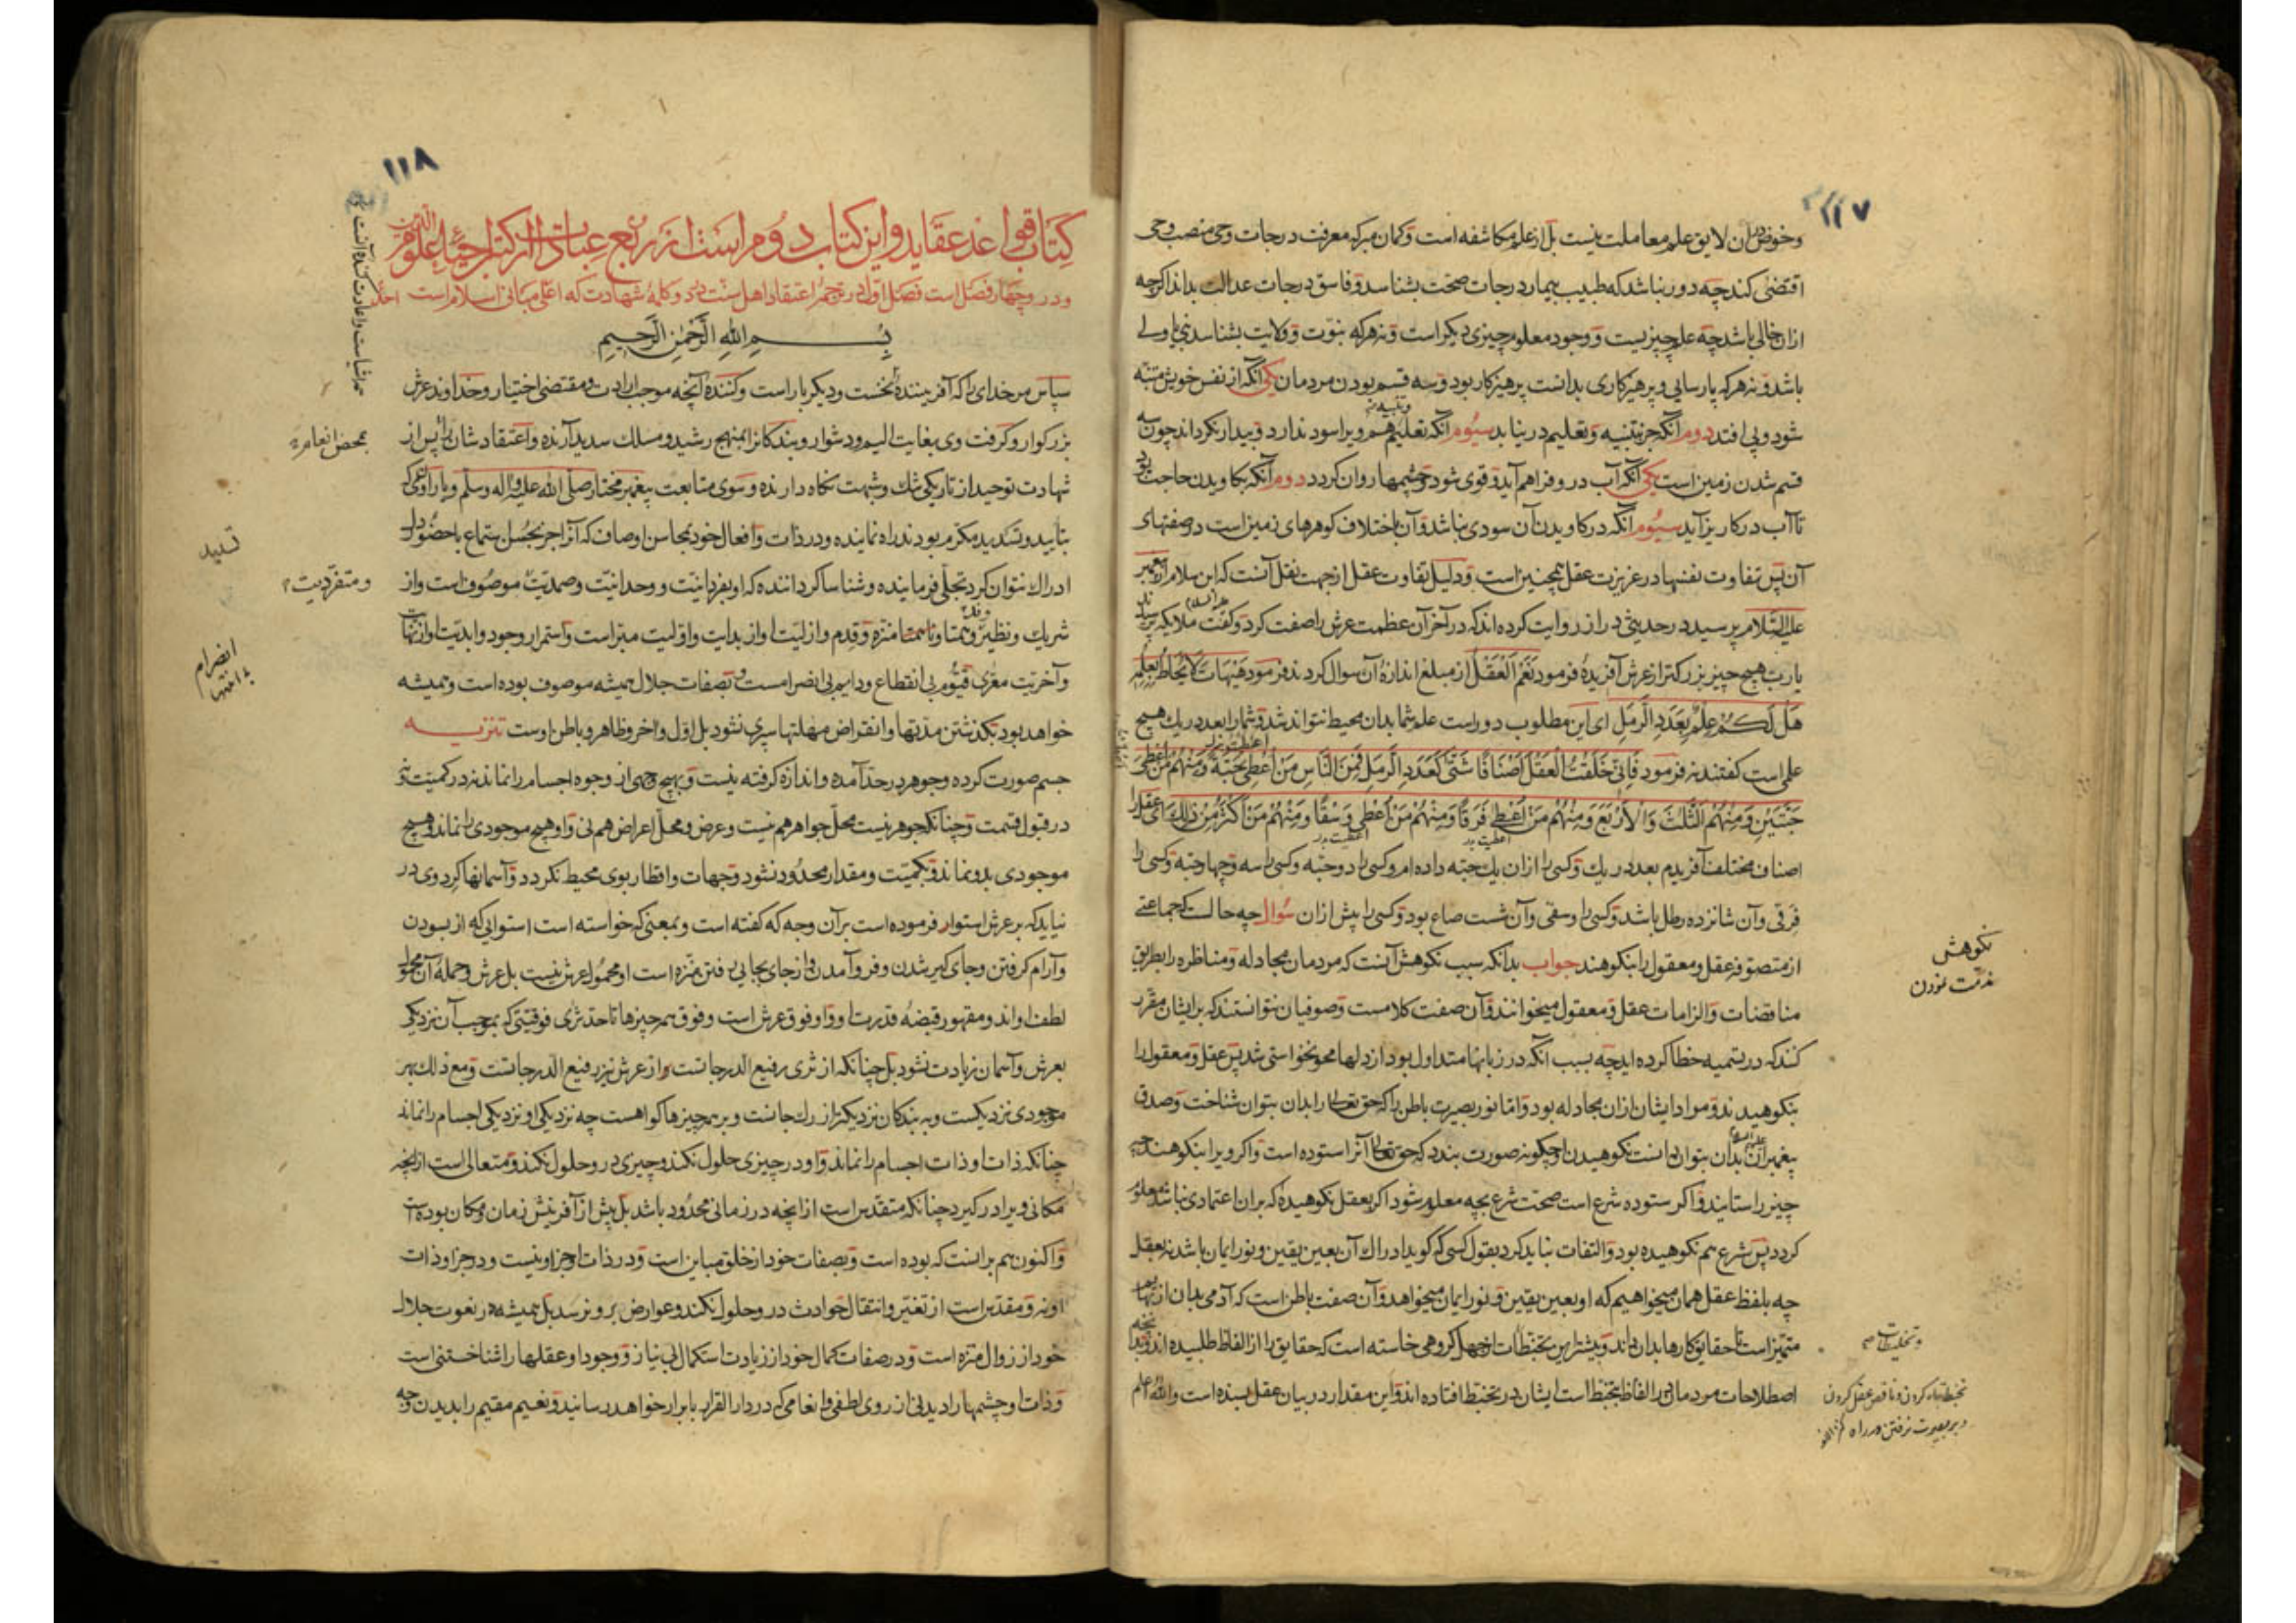 ۱۱۷
وخوض در آن لایق علم معاملت نیست بل از علم مکاشفه است و گمان مبر که معرفت درجات وحی منصب وحی
اقتضی کند چه دور نباشد که طبیب بیمار درجات صحت بشناسد و فاسق درجات عدالت بداند اگرچه
ازان خالی باشد چه علم چیزیست و وجود معلوم چیزی دیگر است و نه هر که نبوت و ولایت بشناسد نبی یا ولی
باشد و نه هر که پارسایی و پرهیزکاری بدانست پرهیزکار بود و سه قسم بودن مردمان یکی آنکه از نفس خویش متنبه
شود و پی افتد دوم آنکه جز بتنبیه و تعلیم در نیابد سیوم آنکه تعلیم هم ویرا سود ندارد و بیدار نگرداند چون سه
قسم شدن زمین است یکی آنکه آب درو فراهم آید و قوی شود و چشمها روان گردد دوم آنکه بکاویدن حاجت بود
تا آب در کاریز آید سیوم آنکه در کاویدن آن سودی نباشد و آن باختلاف گوهرهای زمین است در صفتهای
آن پس تفاوت نفسها در غریزت عقل همچنین است و دلیل تفاوت عقل از جهت نقل آنست که ابن سلام از پیغمبر
علیه السلام پرسید در حدیثی دراز روایت کرده اند که در آخر آن عظمت عرش را صفت کرد و گفت ملایکه پرسیدند
یا رب هیچ چیز بزرگتر از عرش آفریدۀ فرمود نَعَم اَلْعَقْل از مبلغ اندازۀ آن سوال کردند فرمود هَیْهَات لَا یُحَاطُ بِعِلْمِهِ
هَلْ لَکُمْ عِلْمٌ بِعَدَدِ الرَّمْلِ ای این مطلوب دور است علم شما بدان محیط نتواند شد و شما را بعدد ریگ هیچ
علمی است گفتند نه فرمود فَاِنِّی خَلَقْتُ الْعَقْلَ اَصْنَافًا شَتَّی کَعَدَدِ الرَّمْلِ فَمِنَ النَّاسِ مَنْ اُعْطِیَ حَبَّةً وَمِنْهُمْ مَنْ اُعْطِیَ
حَبَّتَیْنِ وَمِنْهُمُ الثَّلٰثَ وَالْاَرْبَعَ وَمِنْهُمْ مَنْ اُعْطِیَ فَرَقًا وَمِنْهُمْ مَنْ اُعْطِیَ وَسْقًا وَمِنْهُمْ مَنْ اَکْثَرُ مِنْ ذٰلِکَ ای عقل را
اصناف مختلف آفریدم بعدد ریگ و کسی را ازان یک حبه داده ام و کسی را دو حبه و کسی را سه و چهار حبه و کسی را
فرقی و آن شانزده رطل باشد و کسی را وسقی و آن شست صاع بود و کسی را بیش ازان سُوال چه حالست که جماعتی
از متصوفه عقل و معقول را بنکوهند جواب بدانکه سبب نکوهش آنست که مردمان مجادله و مناظره را بطریق
مناقضات و الزامات عقل و معقول میخوانند و آن صفت کلامست و صوفیان نتوانستند که بر ایشان مقرر
کنند که در تسمیه خطا کرده اید چه بسبب آنکه در زبانها متداول بود از دلها محو نخواستی شد پس عقل و معقول را
بنکوهیدند و مراد ایشان ازان مجادله بود و اما نور بصیرت باطن را که حق تعالی را بدان بتوان شناخت و صدق
پیغمبران بدان بتوان دانست نکوهیدن او چگونه صورت بندد که حق تعالی آنرا ستوده است و اگر ویرا بنکوهند چه
چیز را ستایند و اگر ستوده شرع است صحت شرع بچه معلوم شود اگر بعقل نکوهیده که بران اعتمادی نباشد معلوم
گردد پس شرع هم نکوهیده بود و التفات نباید کرد بقول کسی که گوید ادراک آن بعین یقین و نور ایمان باشد نه بعقل
چه بلفظ عقل همان میخواهیم که او بعین یقین و نور ایمان میخواهد و آن صفت باطن است که آدمی بدان از بهایم
متمیز است تا حقایق کارها بدان داند و بیشتر این تخبطات از جهل گروهی خاسته است که حقایق را از الفاظ طلبیده اند و بدانچه
اصطلاحات مردمان در الفاظ متخبط است ایشان در تخبط افتاده اند و این مقدار در بیان عقل بسنده است والله اعلم
نکوهش
مذمت نمودن
۱۱۸
کتاب قواعد عقاید و این کتاب دوم است از ربع عبادات از کتب احیاء علوم الدین
و درو چهار فصل است فصل اول در ترجمۀ اعتقاد اهل سنت در دو کلمۀ شهادت که اعلی مبانی اسلام است
بسم الله الرحمن الرحیم
سپاس مر خدای را که آفرینندۀ نخست و دیگر بار است و کنندۀ آنچه موجب ارادت و مقتضی اختیار و خداوند عرش
بزرگوار و گرفت وی بغایت الیم و دشوار و بندگانرا بمنهج رشید و مسلک سدید آرنده و اعتقاد شان را پس از
شهادت توحید از تاریکی شک و شبهت نگاه دارنده و سوی متابعت پیغمبر مختار صلی الله علیه و اله وسلم و یاران وی که
بتأیید و تسدید مکرم بودند راه نماینده و در ذات و افعال خود بمحاسن اوصاف که آنرا جز بحسن ستماع باحضور دل
ادراک نتوان کرد تجلی فرماینده و شناسا گرداننده که او بفردانیت و وحدانیت و صمدیت موصوف است و از
شریک و نظیر و همتا و ناهمتا منزه و قدم و ازلیت او از بدایت و اولیت مبراست و استمرار وجود و ابدیت او از نهایت
و آخریت معری قیوم بی انقطاع و دایم بی انصرامست و بصفات جلال همیشه موصوف بوده است و همیشه
خواهد بود بگذشتن مدتها و انقراض مهلتها سپری نشود بل اول و اخر و ظاهر و باطن اوست تنزیه
جسم صورت کرده و جوهر در حد آمده و اندازه گرفته نیست و بهیچ وجهی از وجوه اجسام را نماند نه در کمیت و نه
در قبول قسمت و چنانکه جوهر نیست محل جواهر هم نیست و عرض و محل اعراض هم نی و او هیچ موجودی را نماند و هیچ
موجودی بدو نماند و بکمیت و مقدار محدود نشود و جهات و اقطار بوی محیط نگردد و آسمانها گرد وی در
نیاید که بر عرش استوار فرموده است بر آن وجه که گفته است و بمعنی که خواسته است استوائی که از بسودن
و آرام گرفتن و جای گیر شدن و فرو آمدن و از جای بجایی رفتن منزه است او محمول عرش نیست بل عرش و حملۀ آن محمول
لطف او اند و مقهور قبضۀ قدرت او و او فوق عرش است و فوق همه چیزها تا حد ثری فوقیتی که بموجب آن نزدیکی
بعرش و آسمان زیادت نشود بل چنانکه از ثری رفیع الدرجاتست از عرش نیز رفیع الدرجاتست و مع ذلک بهر
موجودی نزدیکست و به بندگان نزدیکتر از رگ جانست و بر همه چیزها گواهست چه نزدیکی او نزدیکی اجسام را نماند
چنانکه ذات او ذات اجسام را نماند و او در چیزی حلول نکند و چیزی درو حلول نکند و متعالی است ازانچه
مکانی ویرا در گیرد چنانکه متقدس است ازانچه در زمانی محدود باشد بل پیش از آفرینش زمان و مکان بوده است
و اکنون هم برانست که بوده است و بصفات خود از خلق مباین است و در ذات او جز او نیست و در جز او ذات
او نه و مقدس است از تغیر و انتقال حوادث درو حلول نکند و عوارض برو نرسد بل همیشه در نعوت جلال
خود از زوال منزه است و در صفات کمال خود از زیادت استکمال بی نیاز و وجود او عقلها را شناختنی است
و ذات او چشمها را دیدنی از روی لطفی و انعامی که در دار القرار بابرار خواهد رسانید و نعیم مقیم را بدیدن وجه
تسدید
و متفردیت
انصرام